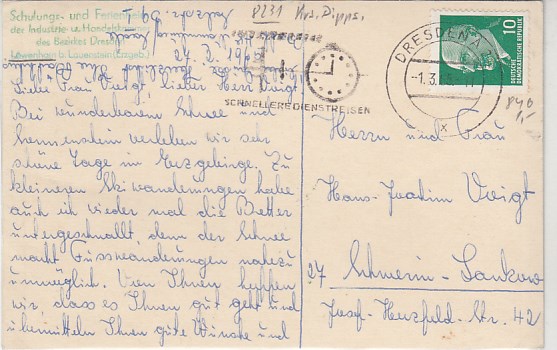 8231 Krs. Dipps.
Schulungs- und Ferienheim
der Industrie u. Handelskammer
des Bezirkes Dresden
Löwenhain b. Lauenstein (Erzgeb.)
Liebe Frau Voigt, lieber Herr Voigt
Bei wunderbarem Schnee und
Sonnenschein verleben wir sehr
schöne Tage im Erzgebirge. Zu
kleineren Skiwanderungen habe
auch ich wieder mal die Bretter
untergeschnallt, denn der Schnee
macht Fusswanderungen nahezu
unmöglich. Von Ihnen hoffen
wir, dass es Ihnen gut geht und
übermitteln Ihnen gute Wünsche und
SCHNELLERE DIENSTREISEN
DRESDEN A
-1.3.
x
10
DEUTSCHE
DEMOKRATISCHE REPUBLIK
Herrn und Frau
Hans-Joachim Voigt
27 Schwerin-Lankow
Josef-Herzfeld-Str. 42